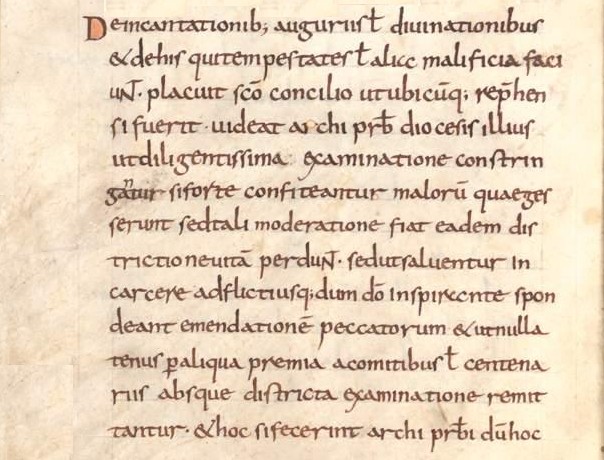 Deincantationib; auguriis ł diuinationibus
& dehis quitempestates ł alia malificia faci
uN· placuit sc̄o concilio utubicūq; rep̄hen
si fuerit· uideat archi prb̄ diocesis illius
utdiligentissima examinatione constrin
gantur siforte confiteantur malorū quaeges
serunt sedtali moderatione fiat eadem dis
trictio neuitā perduN· sedutsaluentur in
carcere adflictiusq; dum dō inspirante spon
deant emendationē peccatorum & utnulla
tenus ꝑaliqua premia acomitibus ł centena
riis absque districta examinatione remit
tantur· & hoc sifecerint archi prb̄i dūhoc